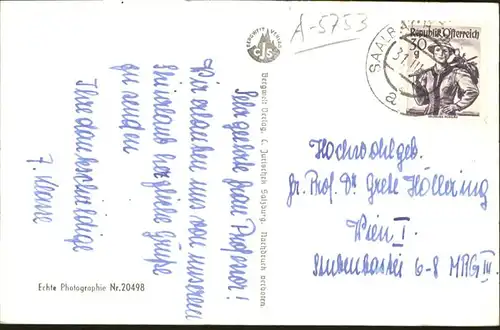 A-5753
BERGWELT VERLAG
CJS
SAALB
a
Republik Österreich
30 g
Sehr geehrte Frau Professor!
Wir erlauben uns von unserem
herzliche Grüße
zu senden
Ihre dankschuldige
7. Klasse
Bergwelt Verlag, C. Jurischek Salzburg. Nachdruck verboten.
Echte Photographie Nr.20498
Hochwohlgeb.
Fr. Prof. Dr Grete Höllering
Wien I.
Stubenbastei 6-8 MRG III